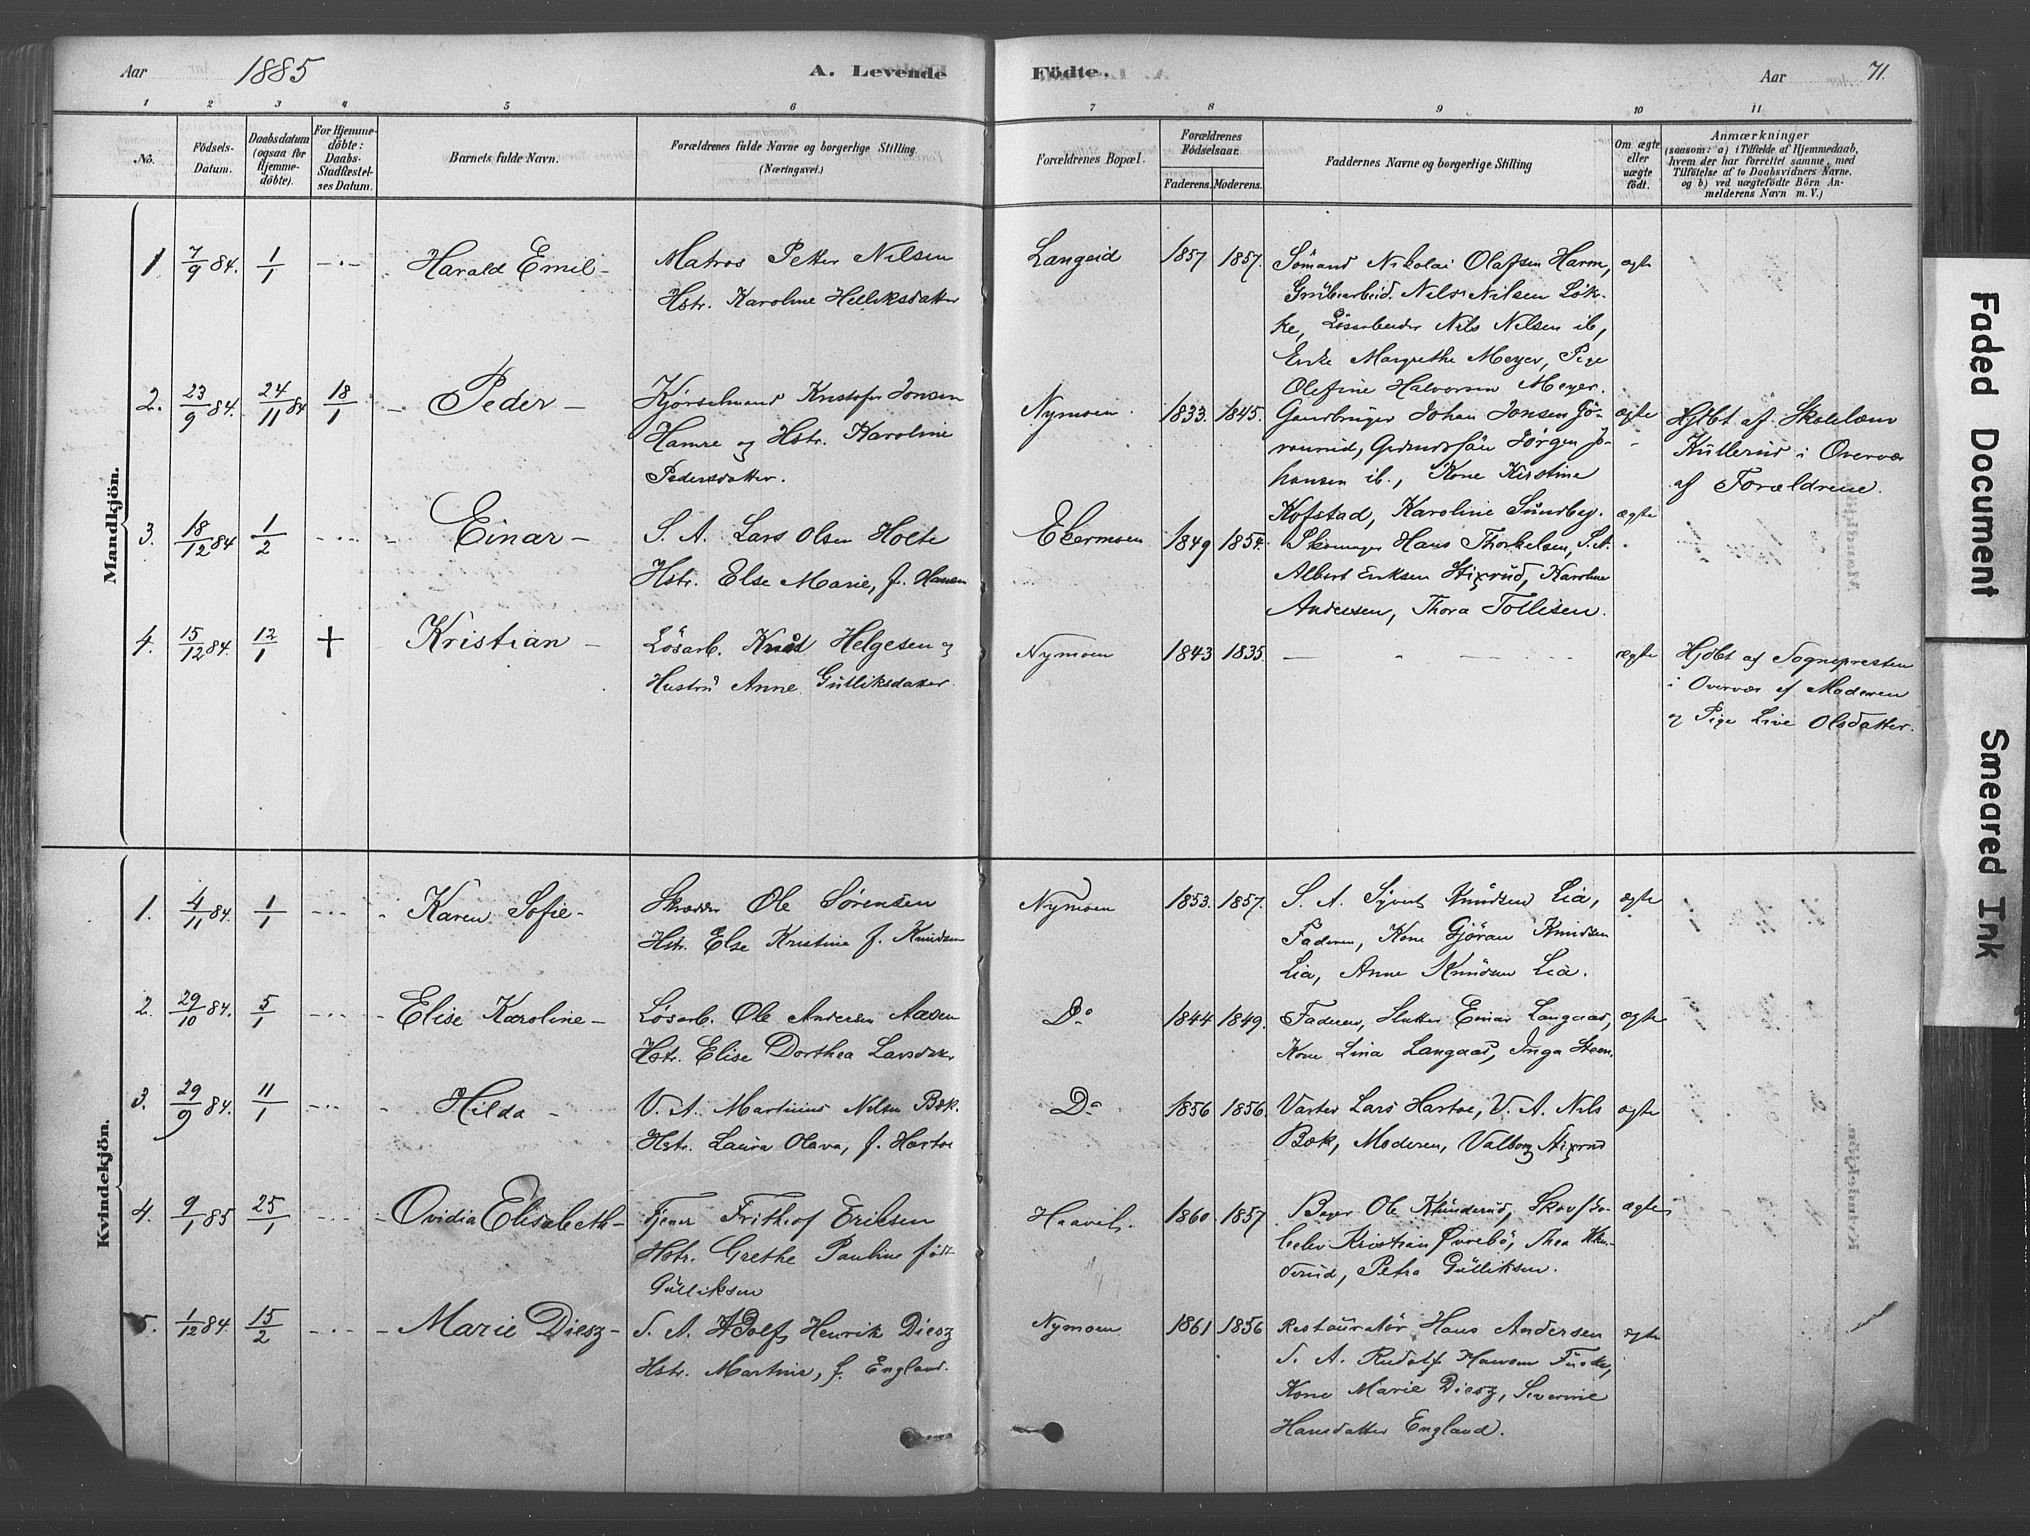 Aar 1885 A. Levende Födte. Aar 71.
1 2 3 4 5 6 7 8 9 10 11
No.
Födsels-
Datum.
Daabsdatum
(ogsaa for
Hjemme-
döbte).
For Hjemme-
döbte:
Daabs-
Stadfæstel-
ses Datum.
Barnets fulde Navn.
Forældrenes fulde Navne og borgerlige Stilling
(Næringsvei.)
Forældrenes Bopæl.
Forældrenes
Födselsaar.
Faderens. Moderens.
Faddernes Navne og borgerlige Stilling
Om ægte
eller
uægte
födt.
Anmærkninger
(saasom: a) i Tilfælde af Hjemmedaab,
hvem der har forrettet samme, med
Tilföielse af to Daabsvidners Navne,
og b) ved uægtefödte Börn An-
melderens Navn m. V.)
Mandkjön.
1. 7/9 84. 1/1 Harald Emil
Matros Petter Nilsen
Hstr. Karoline Helliksdatter
Langeid 1857 1857.
Sömand Nikolai Olafsen Harm,
Grubearbeid. Nils Nilsen Løk-
ke, Lösarbeider Nils Nilsen ib,
Enke Margrethe Meyer, Pige
Olefine Halvorsen Meyer.
ægte
2. 23/9 84. 24/11 84 18/1 Peder
Kjörselmand Kristofer Jonsen
Hamre og Hstr. Karoline
Pedersdatter.
Nymoen. 1833. 1845.
Gaardbruger Johan Jonsen Jö-
rannrud, Jörgen Jo-
hansen ib., Kone Kirstine
Kofstad, Karoline Sundby.
ægte
Hjbt af Skolelærer
Kullerud i Overvær
af Forældrene.
3. 18/12 84 1/2 Einar
S. A. Lars Olsen Holte
Hstr. Else Marie, f. Hansen
Ekermoen 1849 1854.
Skomager Hans Thorkelsen, S. A.
Albert Eriksen Stixrud, Karoline
Andersen, Thora Tollisen.
ægte
4. 15/12 84. 12/1 + Kristian
Lösarb. Knud Helgesen og
Hustru Anne Gulliksdatter
Nymoen 1843 1835.
ægte
Hjdbt af Sognepresten
i Overvær af Moderen
og Pige Live Olsdatter.
Kvindekjön.
1. 4/11 84. 1/1 Karen Sofie
Skrædder Ole Sørensen
Hstr. Else Kristine f. Knudsen
Nymoen 1853. 1857.
S. A. Syvert Knudsen Lia,
Faderen, Kone Gjöran Knudsen
Lia, Anne Knudsen Lia.
ægte
2. 29/10 84. 5/1 Elise Karoline
Løsarb. Ole Andersen Aasen
Hstr. Elise Dorthea Larsdatter
Do 1844 1849.
Faderen, Slutter Einar Langaas,
Kone Lina Langaas, Inga Steen.
ægte
3. 29/9 84. 11/1 Hilda
V. A. Martinius Nilsen Bæk.
Hstr. Laura Olava, f. Hartoe
Do 1856 1856.
Vægter Lars Hartoe, V. A. Nils
Bæk, Moderen, Valborg Stixrud
ægte
4. 9/1 85 25/1 Ovidia Elisabeth
Tjener Frithjof Eriksen
Hstr. Grethe Pauline födt
Gulliksen
1860. 1857
Bager Ole Klunderud, Skovfo-
Kristian Øvrebö, Thea Klun-
derud, Petra Gulliksen.
ægte
5. 1/12 84. 15/2 Marie Diesz
S. A. Adolf Henrik Diesz
Hstr. Martine, f. England.
Nymoen 1861 1856
Restauratör Hans Andersen
S. A. Rudolf
Kone Marie Diesz, Severine
Hansdatter England.
ægte
Faded Document
Smeared Ink